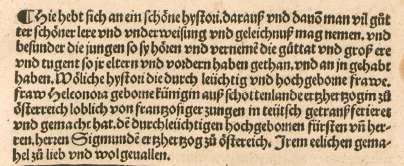 ¶Hie hebt sich an ein schöne hystori. darauß vnd dauō man vil gůt
ter schöner lere vnd vnderweisung vnd geleichnuß mag nemen. vnd
besunder die jungen so sy hören vnd vernemē die gůttat vnd groß ere
vnd tugent so jr eltern vnd vordern haben gethan. vnd an jn gehabt
haben. Wöliche hystori die durch leüchtig vnd hochgeborne frawe.
fraw Heleonora geborne künigin auß schottenlande ertzhertzogin zů
österreich loblich von frantzosiger zungen in teütsch getranßferieret
vnd gemacht hat. dē durchleüchtigen hochgebornen fürsten vñ her-
ren. herren Sigmundē ertzhertzog zů österreich. Irem eelichen gema-
hel zů lieb vnd wolgeuallen.